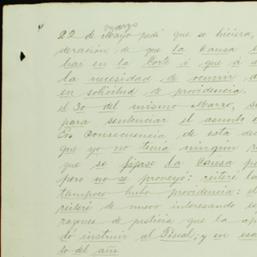 marzo
22 de Mayo pedí que se hiciera,
deración de que la Causa e
bas en la Corte á que á d
la necesidad de ocurrir a
en solicitud de providencia.
el 30 del mismo Marzo, se
para sentenciar el asunto
En Consecuencia de esta de
que yo no tenía ningún r
que se fijase la Causa p
pero no se proveyó: reiteré la
tampoco hubo providencia: el
reiteré de nuevo interesando e
razones de justicia que la ap
do instruir al Fiscal, y en esa
to del año